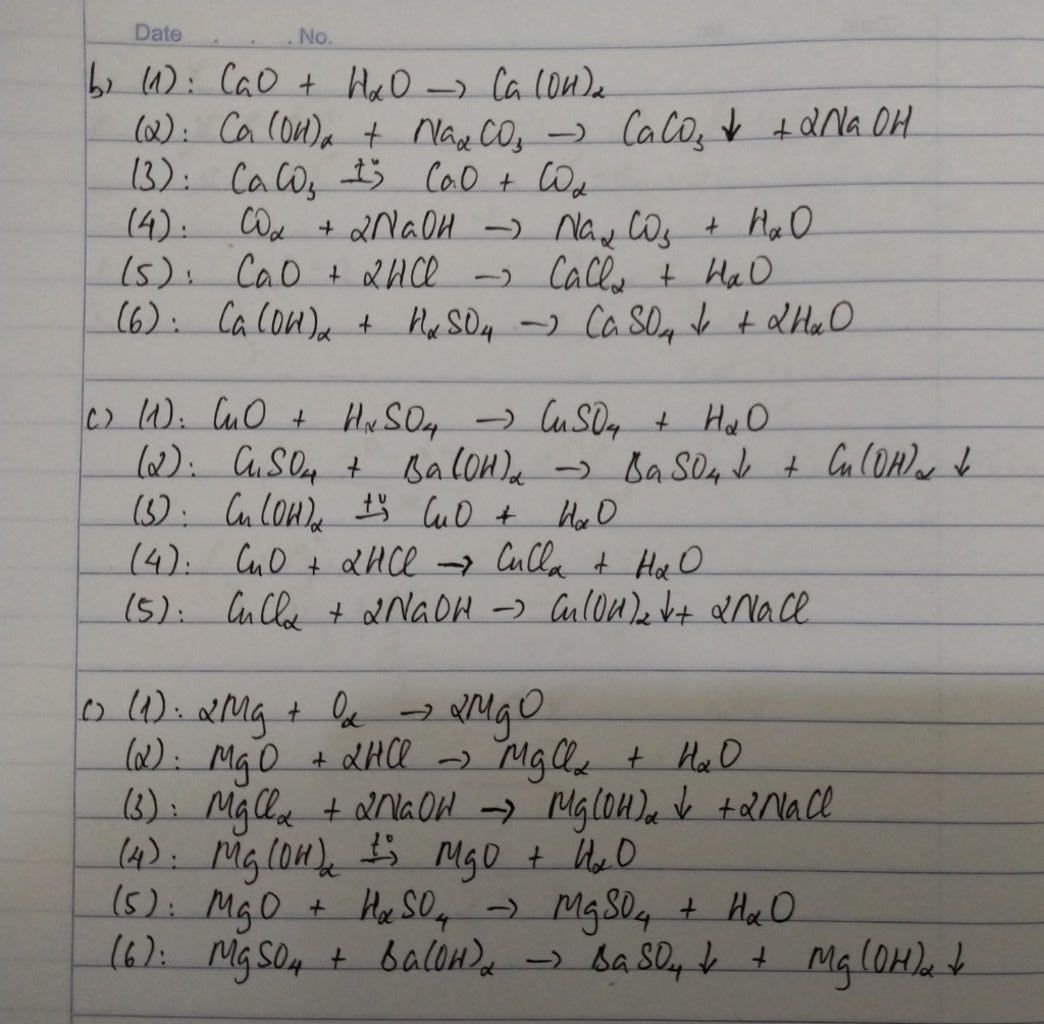 Date . . . No.
b) (1): CaO + H₂O → Ca(OH)₂
(2): Ca(OH)₂ + Na₂CO₃ → CaCO₃ ↓ + 2NaOH
(3): CaCO₃ t°→ CaO + CO₂
(4): CO₂ + 2NaOH → Na₂CO₃ + H₂O
(5): CaO + 2HCl → CaCl₂ + H₂O
(6): Ca(OH)₂ + H₂SO₄ → CaSO₄ ↓ + 2H₂O
c) (1): CuO + H₂SO₄ → CuSO₄ + H₂O
(2): CuSO₄ + Ba(OH)₂ → BaSO₄ ↓ + Cu(OH)₂ ↓
(3): Cu(OH)₂ t°→ CuO + H₂O
(4): CuO + 2HCl → CuCl₂ + H₂O
(5): CuCl₂ + 2NaOH → Cu(OH)₂ ↓ + 2NaCl
c) (1): 2Mg + O₂ → 2MgO
(2): MgO + 2HCl → MgCl₂ + H₂O
(3): MgCl₂ + 2NaOH → Mg(OH)₂ ↓ + 2NaCl
(4): Mg(OH)₂ t°→ MgO + H₂O
(5): MgO + H₂SO₄ → MgSO₄ + H₂O
(6): MgSO₄ + Ba(OH)₂ → BaSO₄ ↓ + Mg(OH)₂ ↓